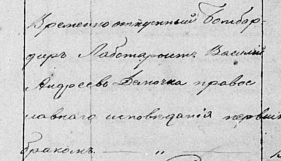 Временноотпускный Бомбар-
диръ Лаборатористъ Василий
Андреевъ Бѣлочка правос
лавнаго исповѣданія первымъ
бракомъ. — „ —